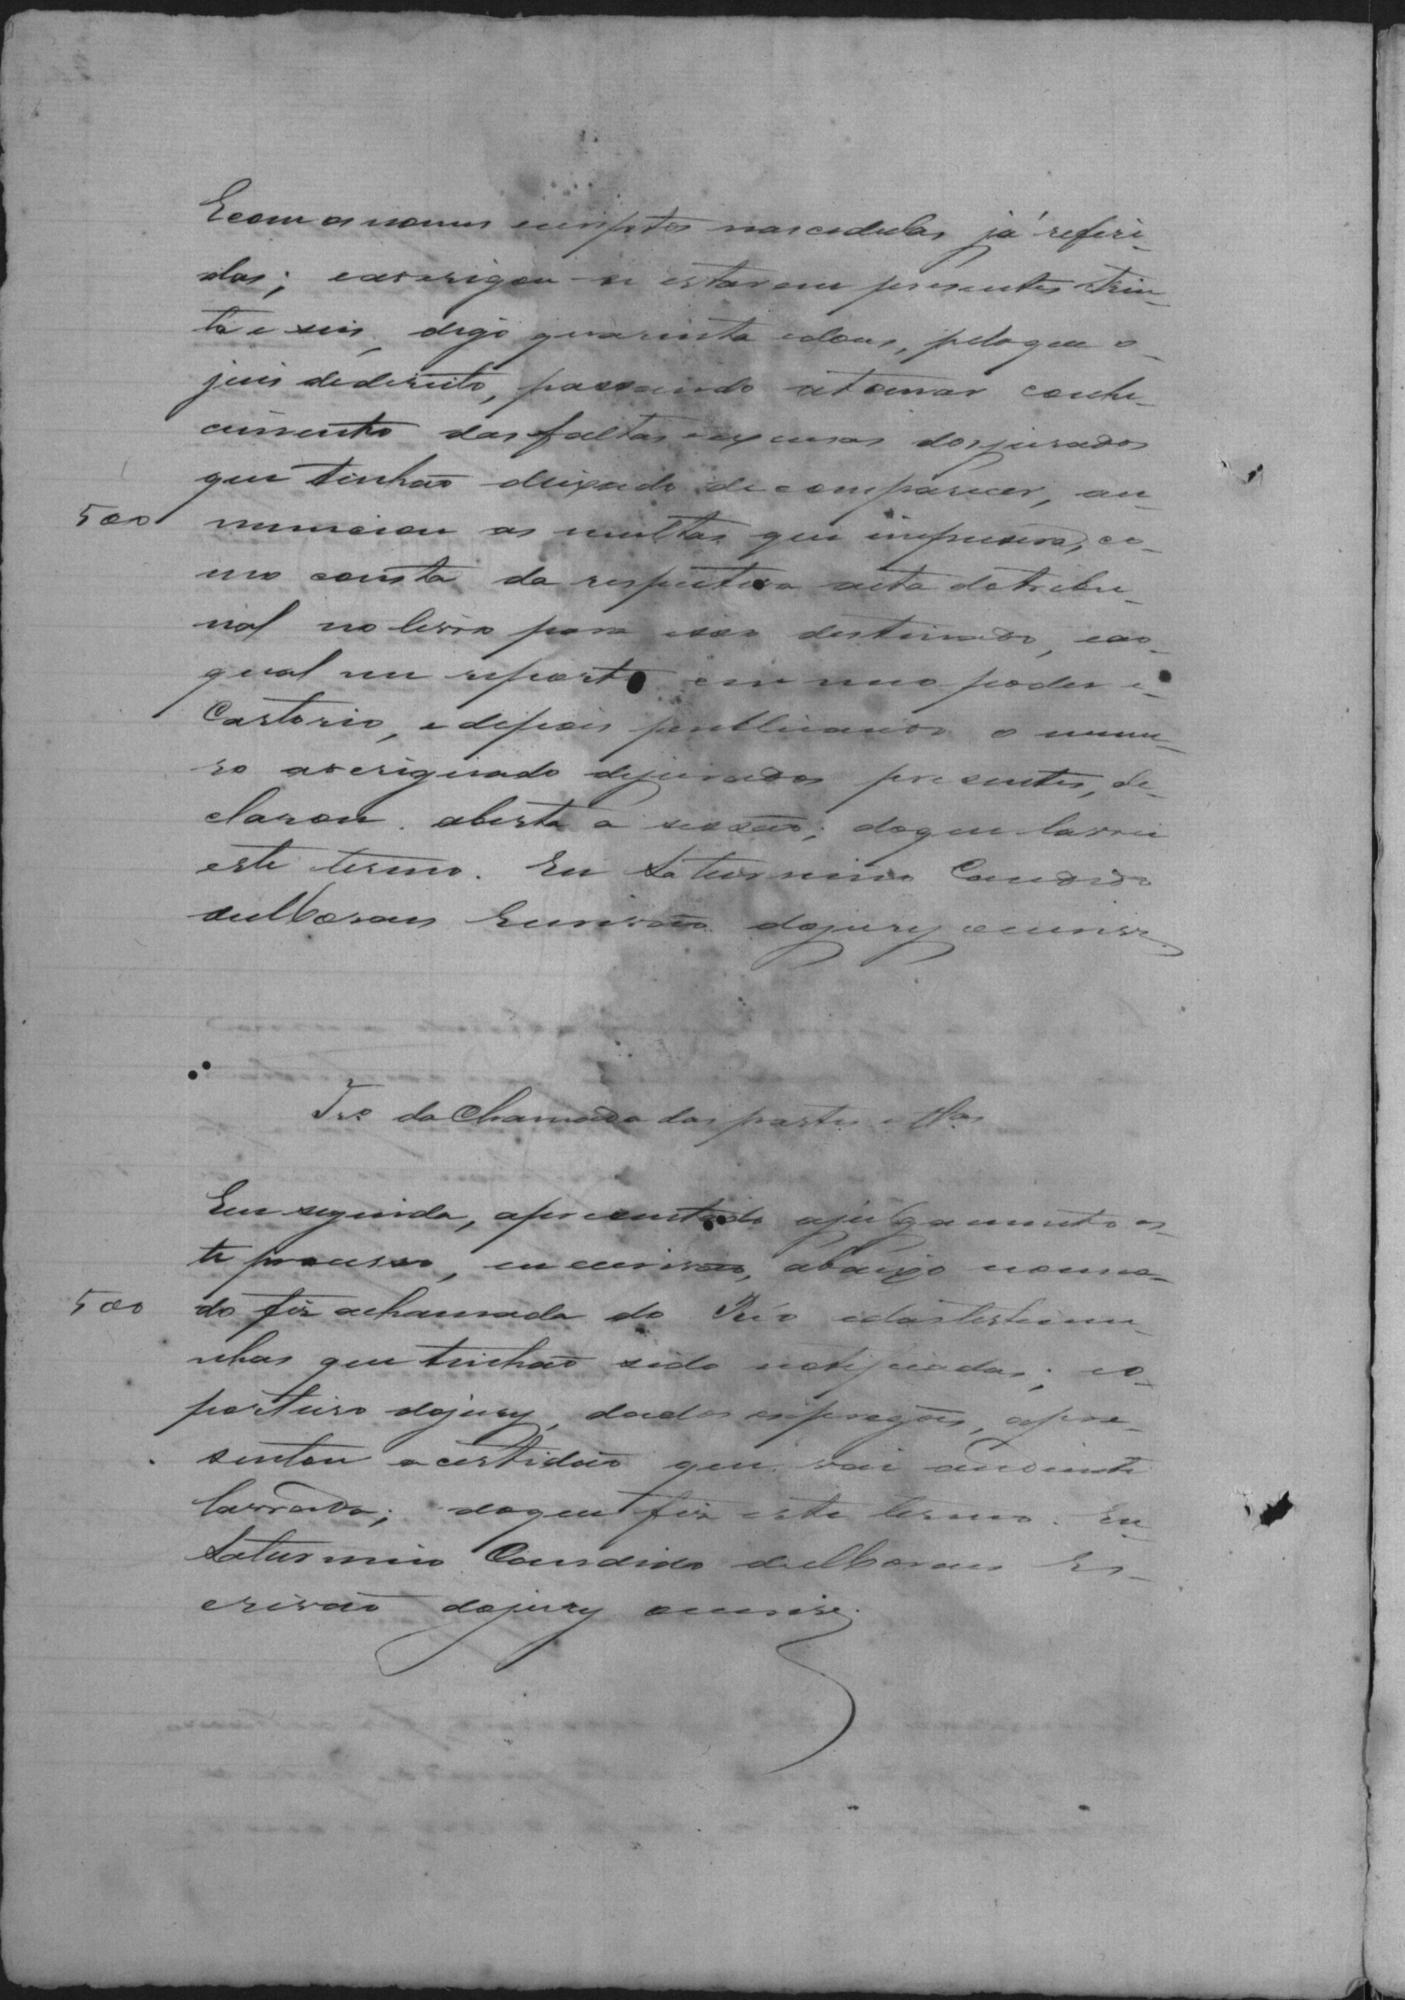 E com os nomes escriptos nas cedulas já referi-
das; e averigou-se estarem presentes trin-
ta e seis, digo quarenta e dous, pelo que o
juis de direito, passando a tomar conhe-
cimento das faltas e excusas dos jurados
que tinhão deixado de comparecer, an-
500 nunciou as multas que impusera, co-
mo consta da respectiva acta do tribu-
nal no livro para isso destinado, e ao
qual me reporto em meo poder e
Cartorio, e depois publicando o nume-
ro averiguado de jurados presentes, de-
clarou aberta a sessão; do que lavrei
este termo. Eu Saturnino Candido
de Moraes Escrivão do jury o escrevi.
Tro da Chamada das partes e Tas
Em seguida, apresentado a julgamento es-
te processo, eu escrivão, abaixo nomea-
500 do fiz a chamada do Réo e das testemu-
nhas que tinhão sido notificadas; e o
porteiro do jury, dados os pregões, apre-
sentou a certidão que vai adiante
lavrada; do que fiz este termo. Eu
Saturnino Candido de Moraes Es-
crivão do jury o escrevi.